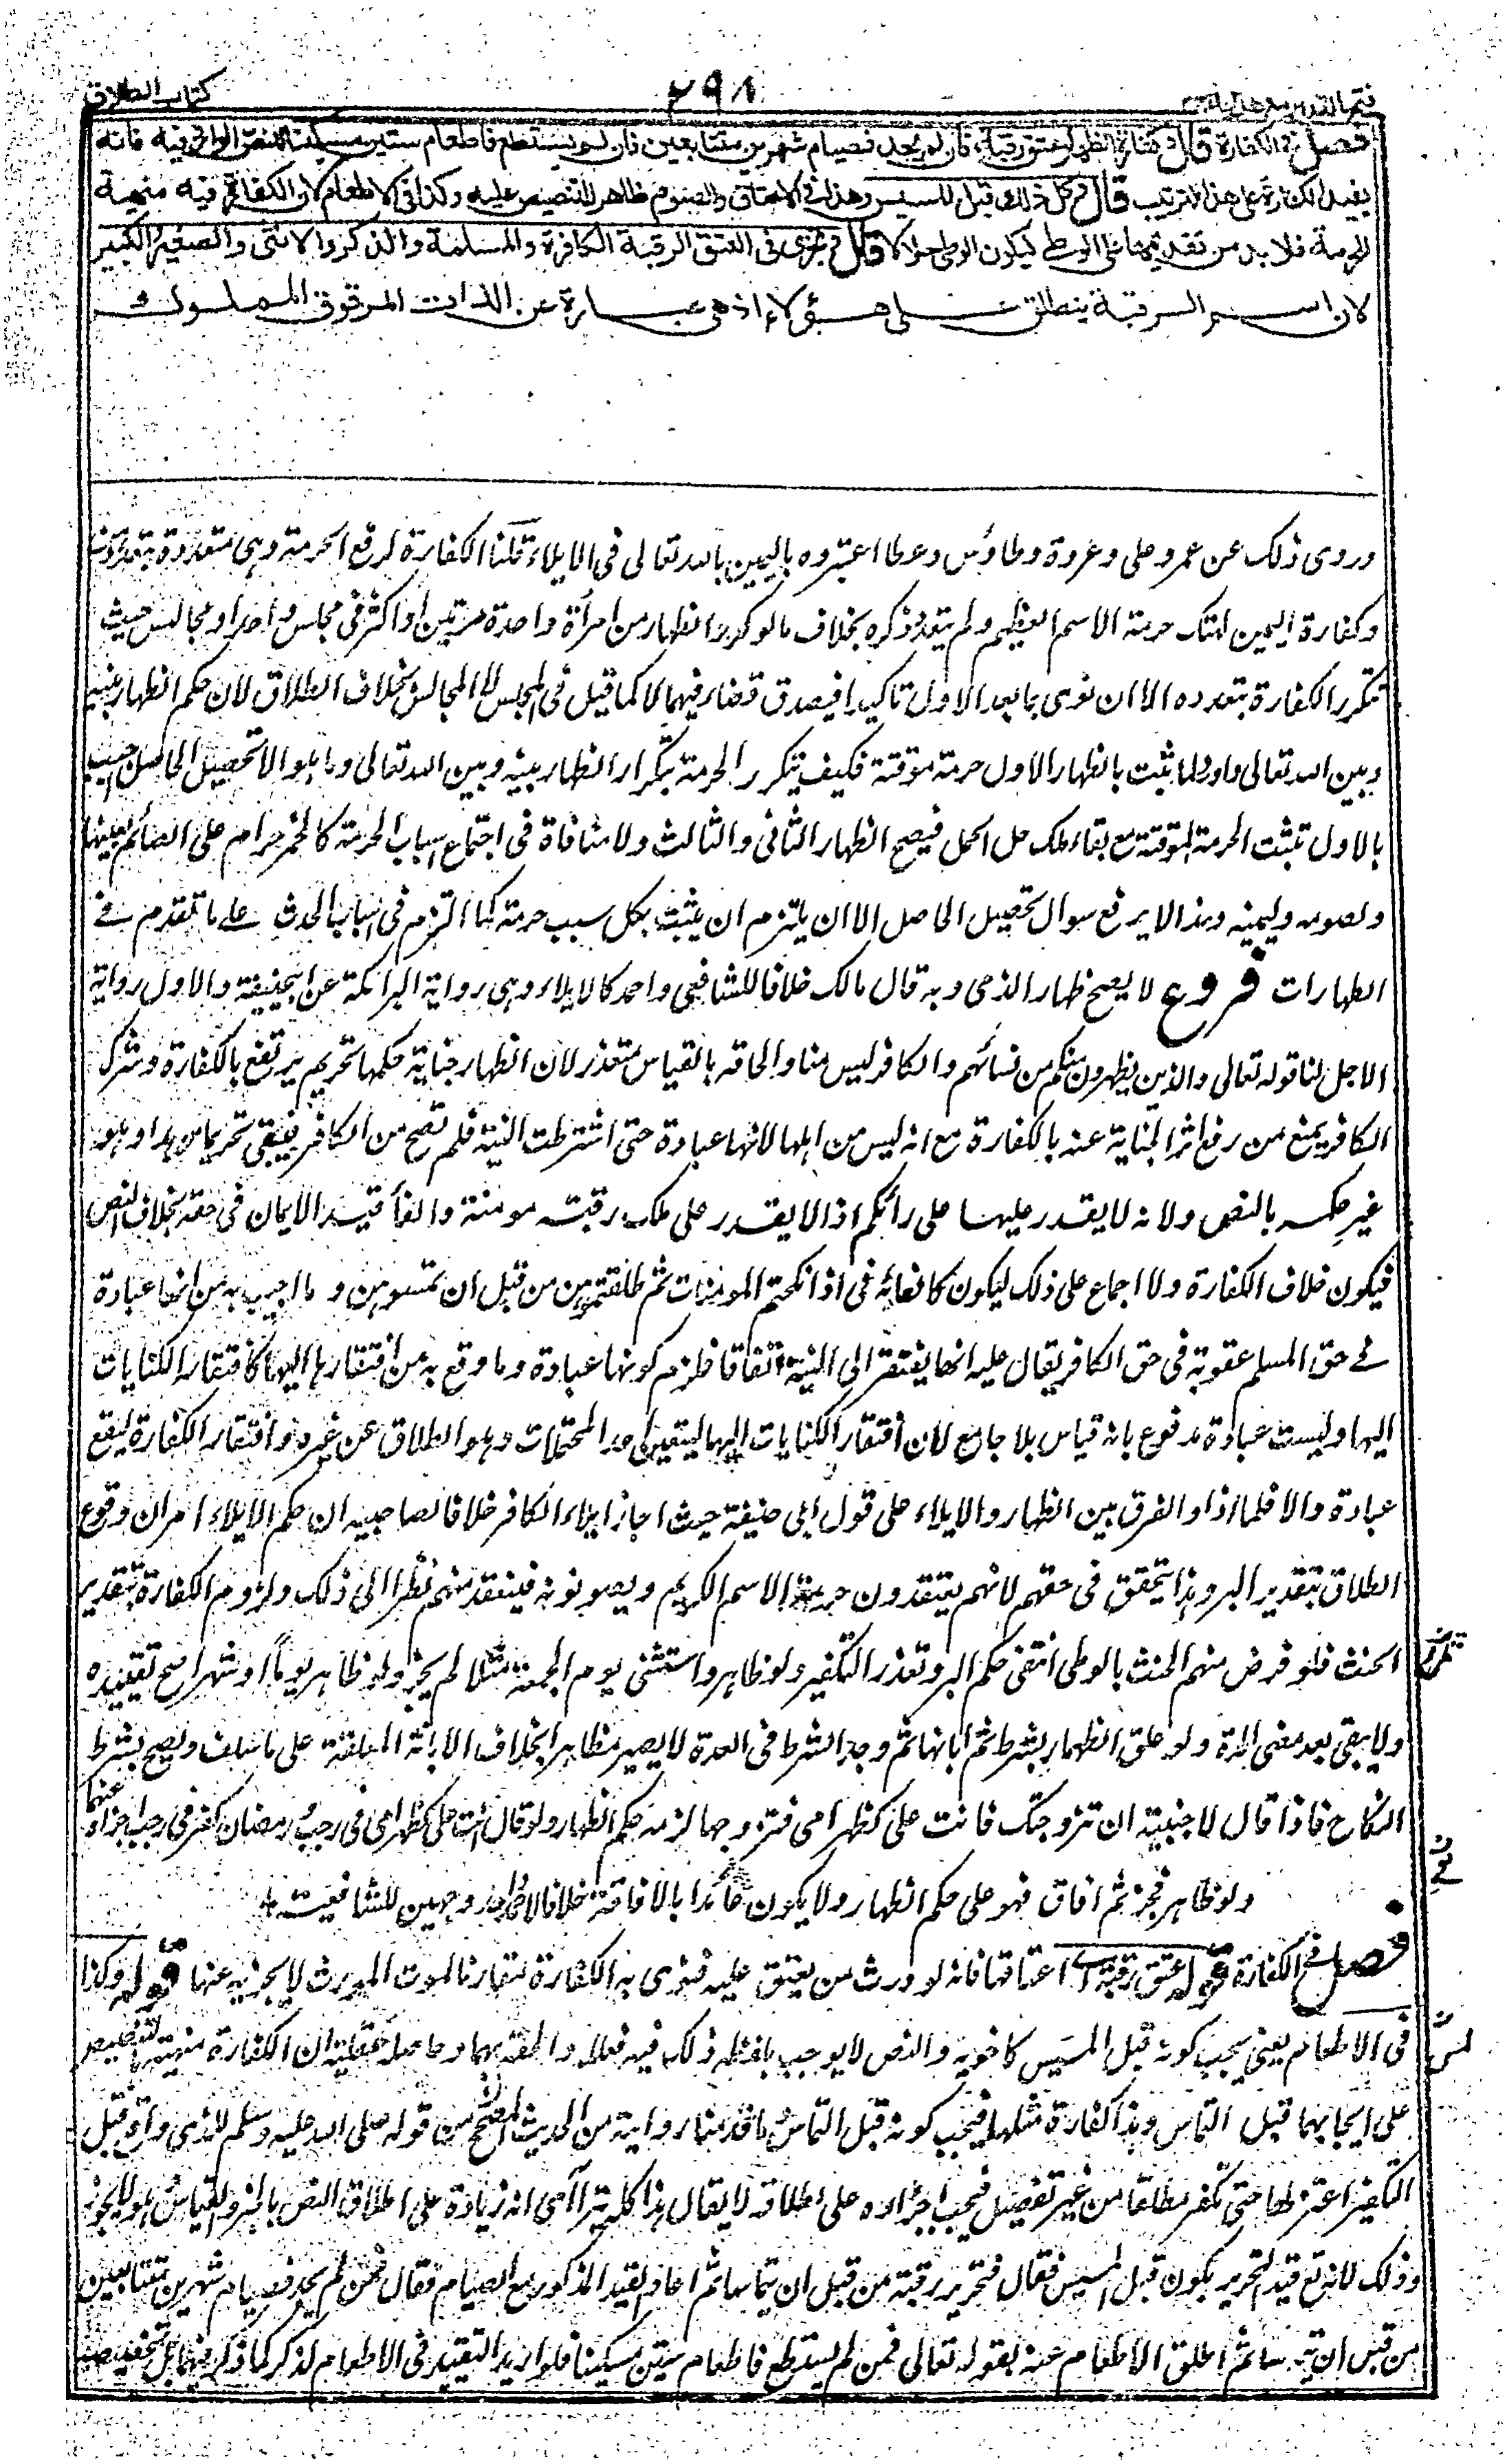 فتح القدير مع هداية
٢٩٨
كتاب الطلاق
فصل في الكفارة قال وكفارة الظهار عتق رقبة فان لم يجد فصيام شهرين متتابعين فان لم يستطع فاطعام ستين مسكينا للنص الوارد فيه فانه
يفيد الكفارة على هذا الترتيب قال وكل ذلك قبل المسيس وهذا في الاعتاق والصوم ظاهر للتنصيص عليه وكذا في الاطعام لان الكفارة فيه منهية
للحرمة فلا بد من تقديمها على الوطي ليكون الوطي حلالا قال ويجزي في العتق الرقبة الكافرة والمسلمة والذكر والانثى والصغير والكبير
لان اسم الرقبة ينطلق على هؤلاء اذ هي عبارة عن الذات المرقوق المملوك
وروى ذلك عن عمر وعلى وعروة وطاؤس وعطا اعتبروه باليمين بالله تعالى فى الايلاء قلنا الكفارة لرفع الحرمة وهى متعددة بتعددهن
وكفارة اليمين لهتك حرمة الاسم العظيم ولم يتعدد ذكره بخلاف ما لو كرر الظهار من امرأة واحدة مرتين او اكثر فى مجلس واحد او مجالس حيث
تتكرر الكفارة بتعدده الا ان نوى بما بعد الاول تاكيدا فيصدق قضاء فيهما لا كما قيل فى المجلس لا المجالس بخلاف الطلاق لان حكم الظهار بينه
وبين الله تعالى واورد لما ثبت بالظهار الاول حرمة موقتة فكيف تتكرر الحرمة بتكرار الظهار بينه وبين الله تعالى وما هو الا تحصيل الحاصل اجيب
بالاول تثبت الحرمة الموقتة مع بقاء ملك حل المحل فيصح الظهار الثانى والثالث ولا منافاة فى اجتماع اسباب الحرمة كالخمر حرام على الصائم لعينها
ولصومه وليمينه وهذا لا يرفع سوال تحصيل الحاصل الا ان يلتزم ان يثبت بكل سبب حرمة كما التزم فى اسباب الحدث على ما تقدم فى
الطهارات فروع لا يصح ظهار الذمى وبه قال مالك خلافا للشافعى واحمد كالايلاء وهى رواية البرامكة عن ابيحنيفة والاول رواية
الاصل لنا قوله تعالى والذين يظهرون منكم من نسائهم والكافر ليس منا والحاقه بالقياس متعذر لان الظهار جناية حكمها تحريم يرتفع بالكفارة وشرك
الكافر يمنع من رفع اثر الجناية عنه بالكفارة مع انه ليس من اهلها لانها عبادة حتى اشترطت النية فلم تصح من الكافر فيبقى تحريما مؤبدا وهو
غير حكمه بالنص ولانه لا يقدر عليها على رائكم اذ لا يقدر على ملك رقبة مومنة والغاء قيد الايمان فى حقه بخلاف النص
فيكون خلاف الكفارة ولا اجماع على ذلك ليكون كالغائه فى اذا نكحتم المومنات ثم طلقتموهن من قبل ان تمسوهن وما اجيب به من انها عبادة
فى حق المسلم عقوبة فى حق الكافر يقال عليه انها يفتقر الى النية اتفاقا فلزم كونها عبادة وما وقع به من افتقارها اليها كافتقار الكنايات
اليها وليست عبادة مدفوع بانه قياس بلا جامع لان افتقار الكنايات اليها ليتعين احد المحتملات وهو الطلاق عن غيره وافتقار الكفارة ليقع
عبادة والا فلماذا والفرق بين الظهار والايلاء على قول ابى حنيفة حيث اجاز ايلاء الكافر خلافا لصاحبيه ان حكم الايلاء امران وقوع
الطلاق بتقدير البر وهذا يتحقق فى حقهم لانهم يعتقدون حرمة الاسم الكريم ويصونونه فينعقد منهم نظرا الى ذلك ولزوم الكفارة بتقدير
الحنث فلو فرض منهم الحنث بالوطى انتفى حكم البر وتعذر التكفير ولو ظاهر واستثنى يوم الجمعة مثلا لم يجز ولو ظاهر يوما او شهرا صح تقييده
ولا يبقى بعد مضى المدة ولو علق الظهار بشرط ثم ابانها ثم وجد الشرط فى العدة لا يصير مظاهرا بخلاف الابانة المعلقة على ما سلف ويصح بشرط
النكاح فاذا قال لاجنبية ان تزوجتك فانت على كظهر امى فتزوجها لزمه حكم الظهار ولو قال انت على كظهر امى فى رجب ورمضان كفر فى رجب اجزأه عنهما
ولو ظاهر فجن ثم افاق فهو على حكم الظهار ولا يكون عائدا بالافاقة خلافا لاحد وجهين للشافعية
فصل فى الكفارة قوله عتق رقبة اى اعتاقها فانه لو ورث من يعتق عليه فنوى به الكفارة مقارنا لموت المورث لا يجزيه عنها قوله وكذا
فى الاطعام يعنى يجب كونه قبل المسيس كاخويه والنص لا يوجب بلفظه ذلك فيه فعلله والحقه بهما وحاصله عقلية ان الكفارة منهية بالتنصيص
على ايجابهما قبل التماس وهذا كفارة مثلهما فيجب كونه قبل التماس وما قدمنا رواية من الحديث المصحح من قوله صلى الله عليه وسلم للذى واقع قبل
التكفير اعتزلها حتى تكفر مطلقا من غير تفصيل فيجب اجراؤه على اطلاقه لا يقال هذا كله يتراأى انه زيادة على اطلاق النص بالخبر والقياس وهو لا يجوز
وذلك لانه تع قيد التحرير بكونه قبل المسيس فقال فتحرير رقبة من قبل ان يتماسا ثم اعاد القيد المذكور مع الصيام فقال فمن لم يجد فصيام شهرين متتابعين
من قبل ان يتماسا ثم اطلق الاطعام عنه بقوله تعالى فمن لم يستطع فاطعام ستين مسكينا فلو اريد التقييد فى الاطعام لذكر كما ذكر فيهما بل تخصيصه